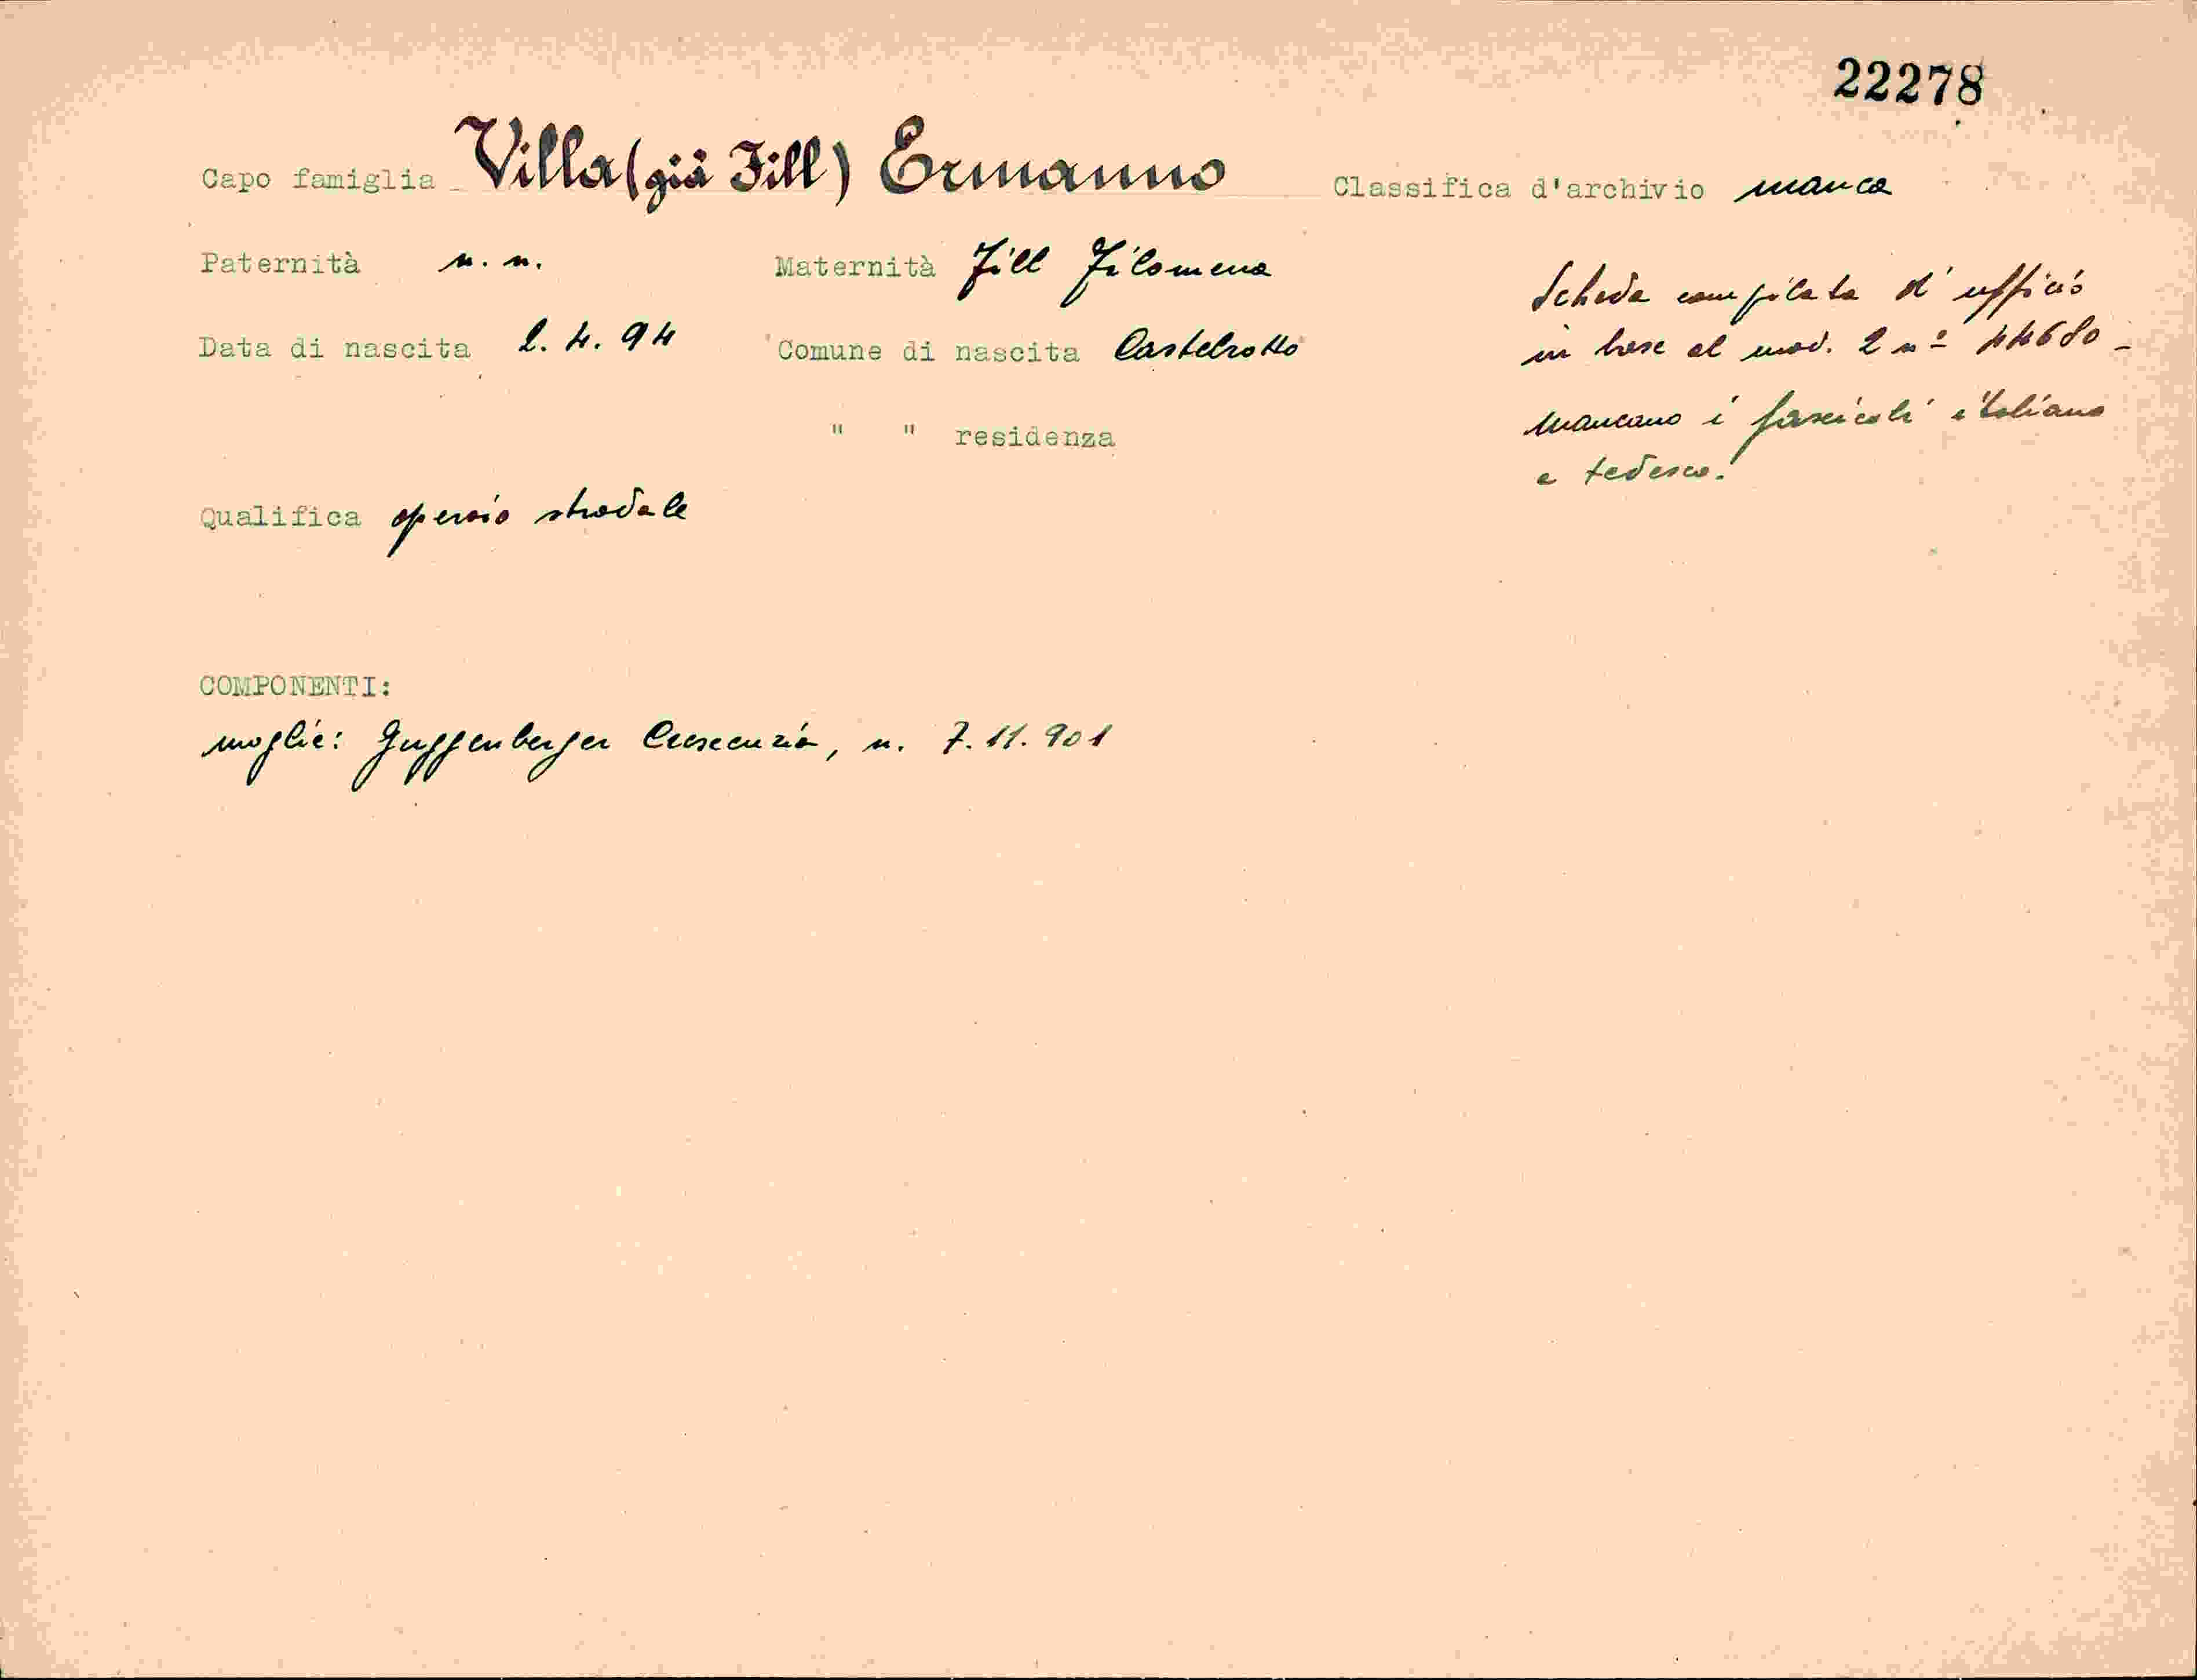 22278
Capo famiglia Villa (già Fill) Ermanno Classifica d'archivio manca
Paternità n. n. Maternità Fill Filomena
Scheda compilata d'ufficio
Data di nascita 2. 4. 94 Comune di nascita Castelrotto
in base al mod. 2 nº 44680 -
mancano i fascicoli italiano
" " residenza
e tedesco.
Qualifica operaio stradale
COMPONENTI:
moglie: Guggenberger Crescenzia, n. 7. 11. 901